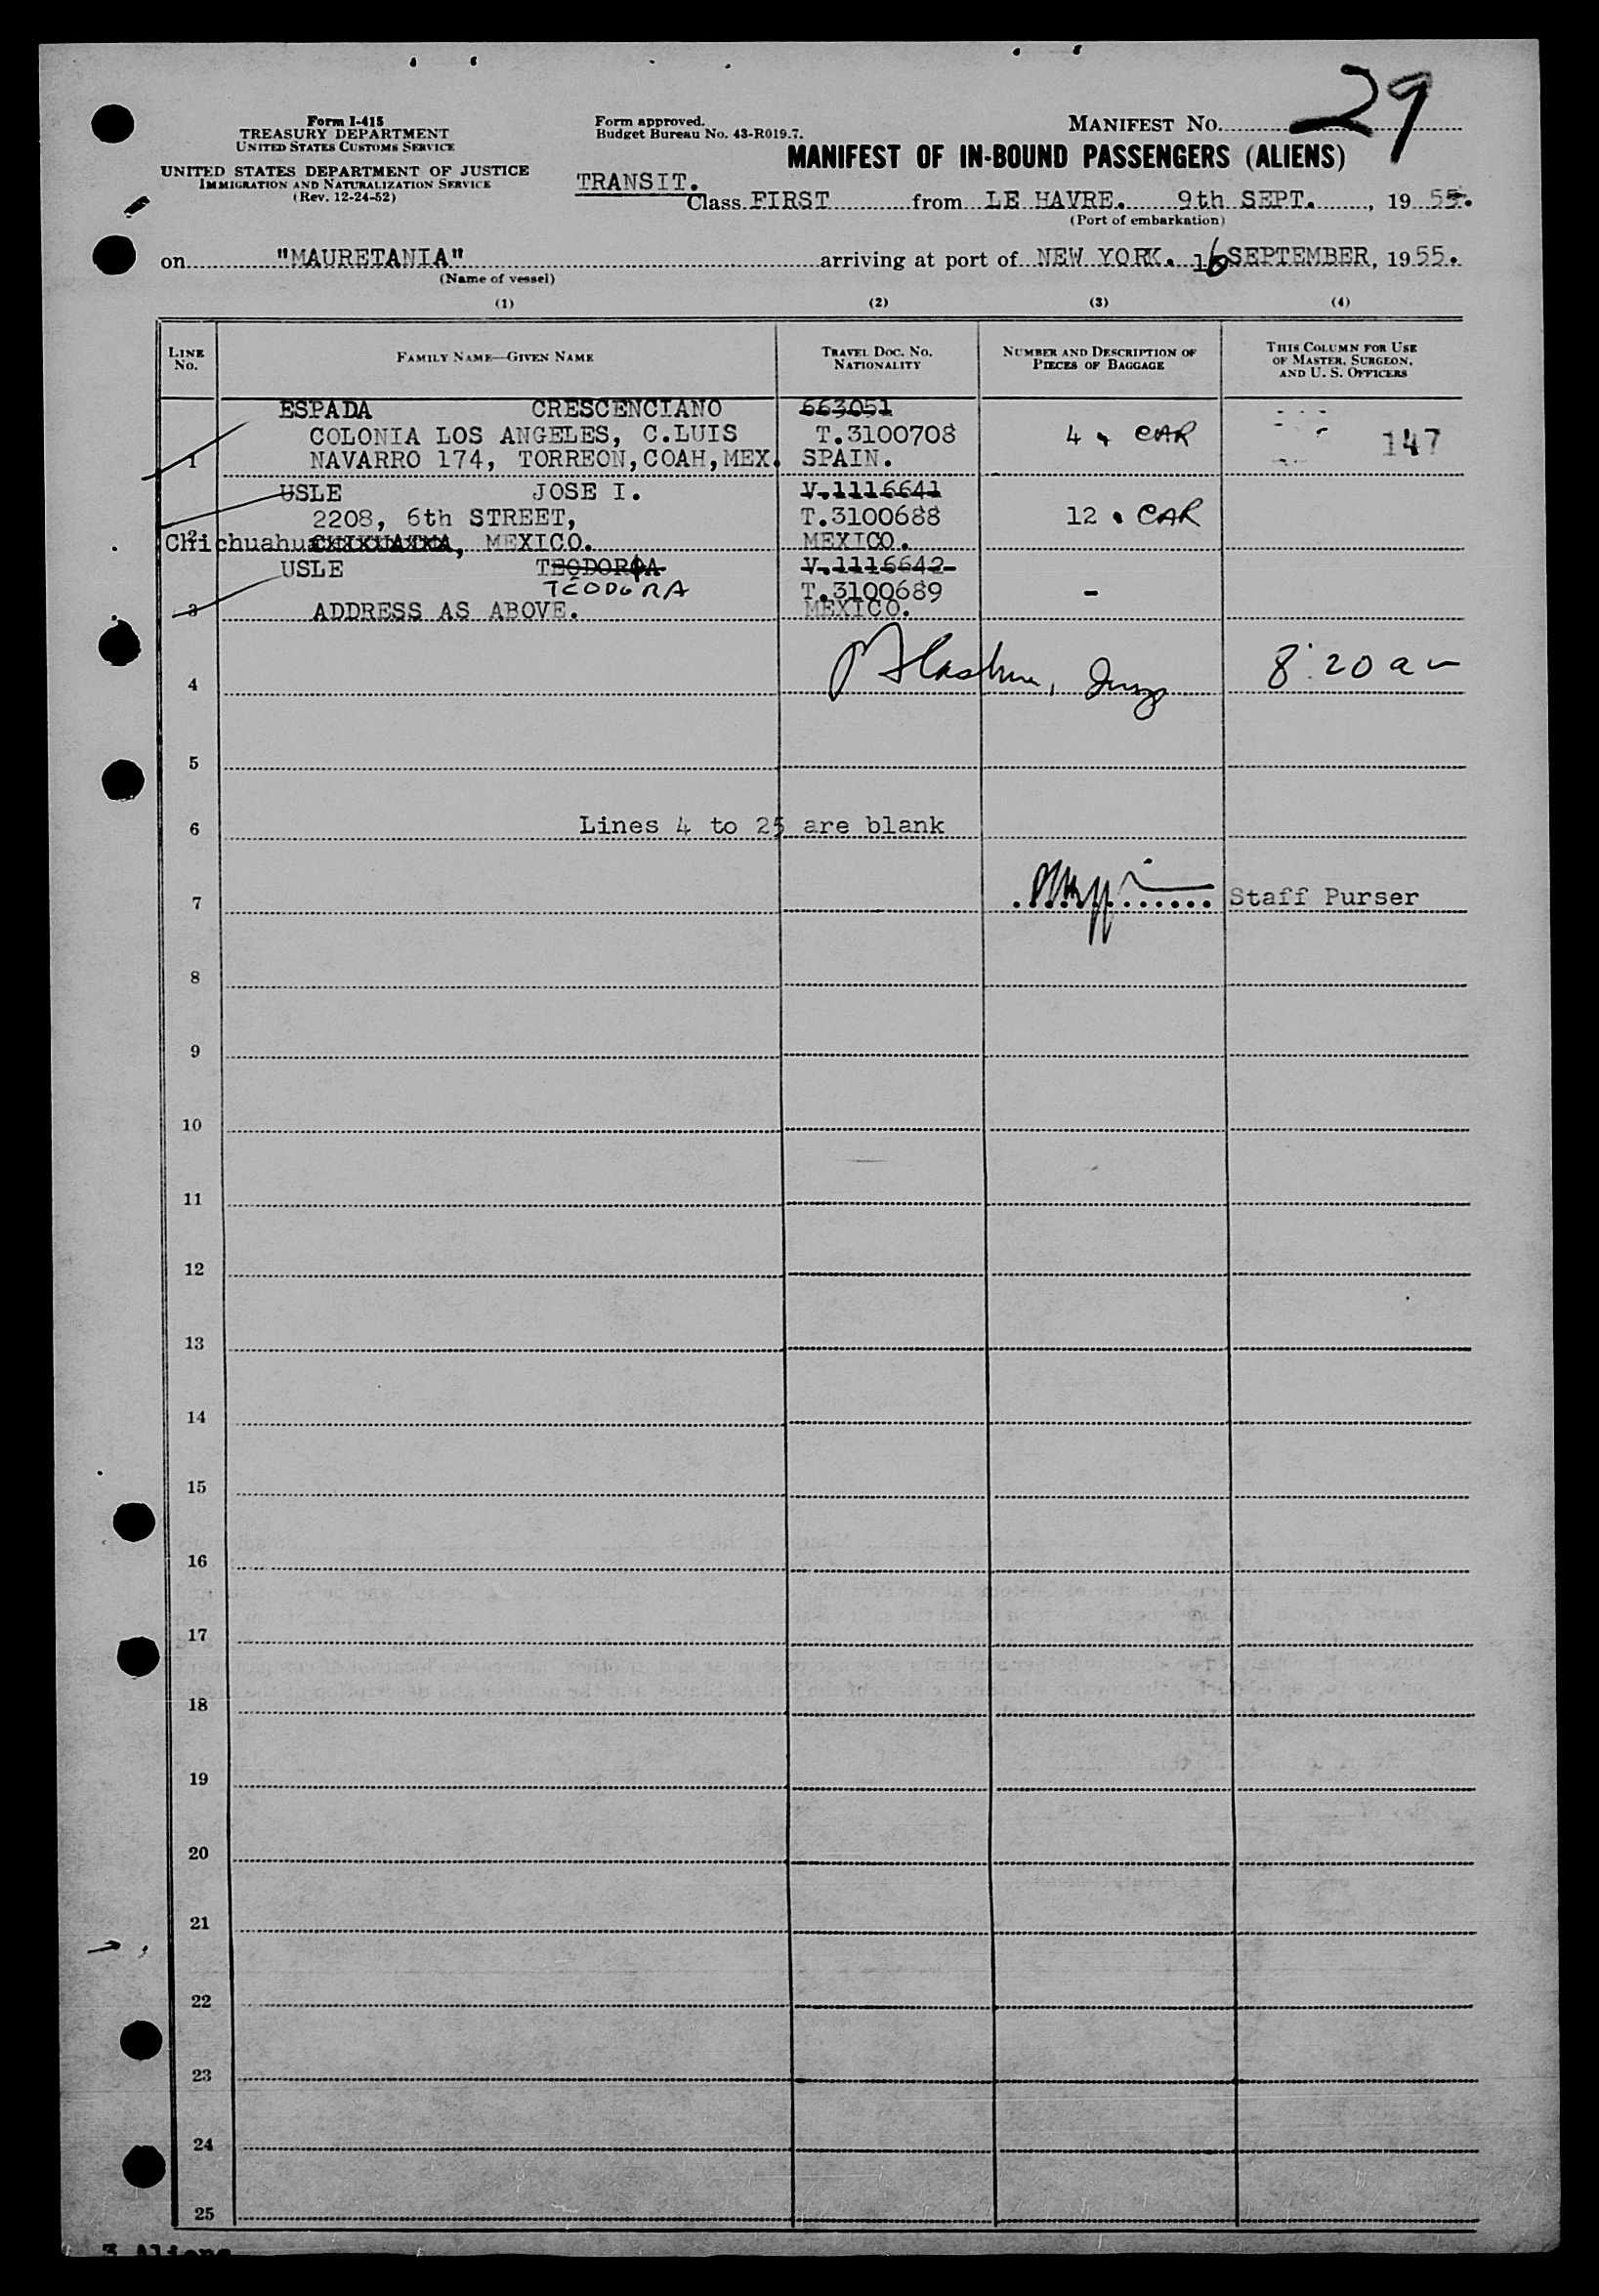 29
Form I-415
TREASURY DEPARTMENT
UNITED STATES CUSTOMS SERVICE
UNITED STATES DEPARTMENT OF JUSTICE
IMMIGRATION AND NATURALIZATION SERVICE
(Rev. 12-24-52)
Form approved.
Budget Bureau No. 43-R019.7.
MANIFEST No.
MANIFEST OF IN-BOUND PASSENGERS (ALIENS)
TRANSIT.
Class FIRST from LE HAVRE. 9th SEPT., 19 55.
(Port of embarkation)
on "MAURETANIA" arriving at port of NEW YORK. 16 SEPTEMBER, 19 55.
(Name of vessel)
(1) (2) (3) (4)
LINE No. FAMILY NAME—GIVEN NAME TRAVEL DOC. NO. NATIONALITY NUMBER AND DESCRIPTION OF PIECES OF BAGGAGE THIS COLUMN FOR USE OF MASTER, SURGEON, AND U. S. OFFICERS
ESPADA CRESCENCIANO 663051
COLONIA LOS ANGELES, C.LUIS T.3100708 4 CAR 147
1 NAVARRO 174, TORREON, COAH, MEX. SPAIN.
USLE JOSE I. V.1116641
2208, 6th STREET, T.3100688 12 CAR
2 Chichuahua, MEXICO. MEXICO.
USLE TEODOROA V.1116642
TEODORA T.3100689 -
3 ADDRESS AS ABOVE. MEXICO.
4 8:20 am
5
6 Lines 4 to 25 are blank
7 Staff Purser
8
9
10
11
12
13
14
15
16
17
18
19
20
21
22
23
24
25
3 Aliens